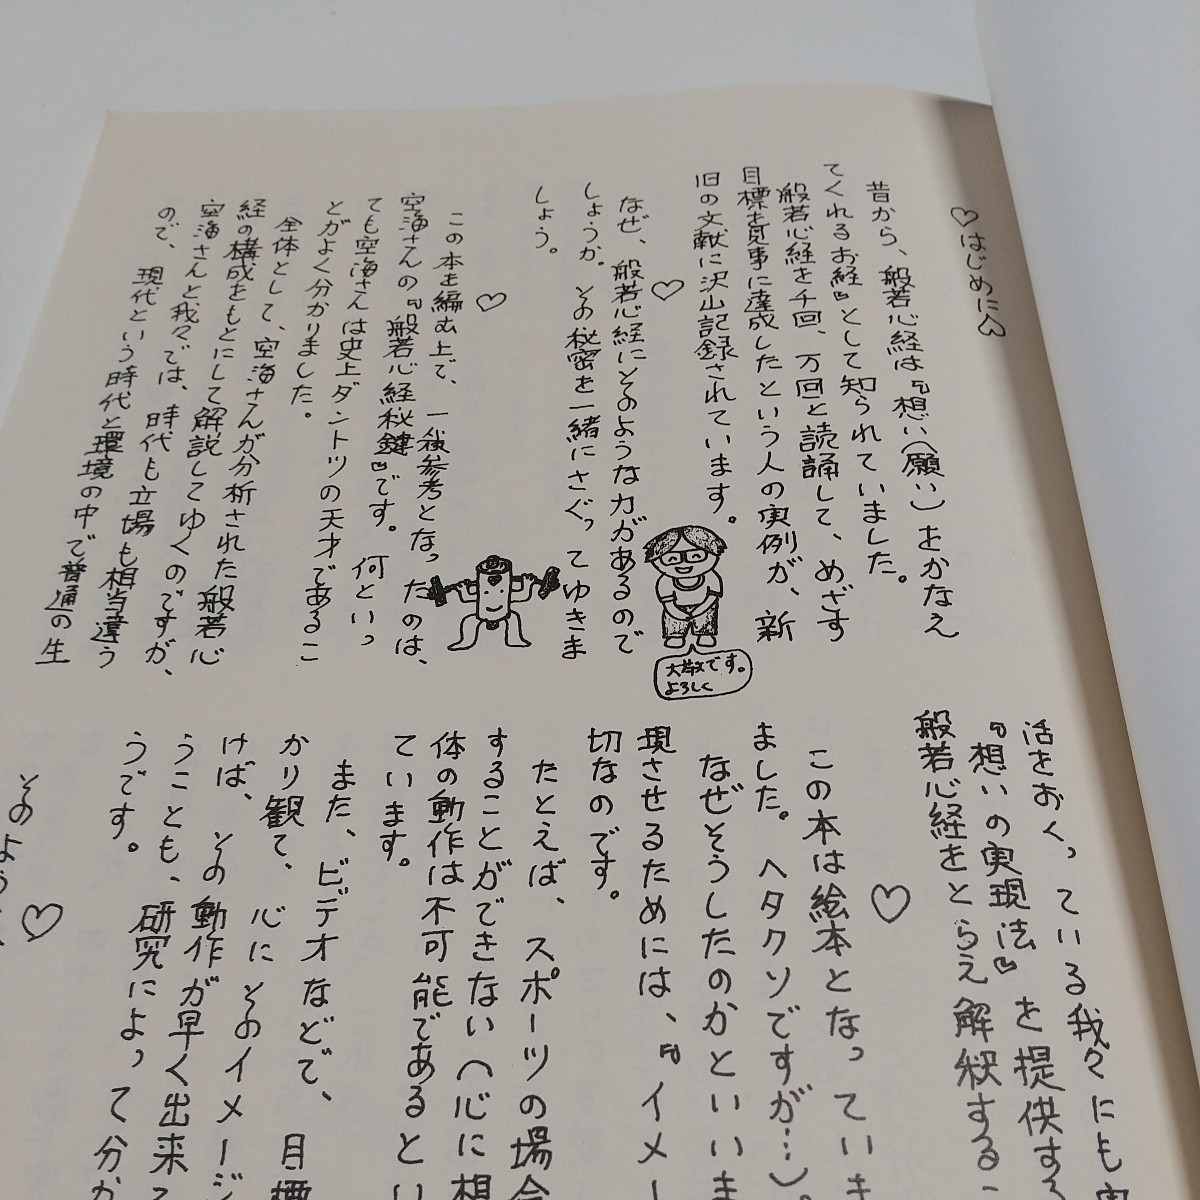 ♡はじめに♡
昔から、般若心経は『想い(願い)をかなえ
てくれるお経』として知られていました。
般若心経を千回、万回と読誦して、めざす
目標を見事に達成したという人の実例が、新
旧の文献に沢山記録されています。
♡
なぜ、般若心経にそのような力があるので
しょうか。その秘密を一緒にさぐってゆきま
しょう。
♡
この本を編む上で、一番参考となったのは、
空海さんの『般若心経秘鍵』です。何といっ
ても空海さんは史上ダントツの天才であるこ
とがよく分かりました。
全体として、空海さんが分析された般若心
経の構成をもとにして解説してゆくのですが、
空海さんと我々では、時代も立場も相当違う
ので、現代という時代と環境の中で普通の生
大散です。
よろしく
活をおくっている我々にも
『想いの実現法』を提供する
般若心経をとらえ解釈するこ
♡
この本は絵本となっていま
ました。ヘタクソですが…)。
なぜそうしたのかといいま
現させるためには、『イメー
切なのです。
たとえば、スポーツの場合
することができない(心に想
体の動作は不可能であるとい
ています。
また、ビデオなどで、目標
かり観て、心にそのイメージ
けば、その動作が早く出来
うことも、研究によって分か
うです。
♡
そのよう